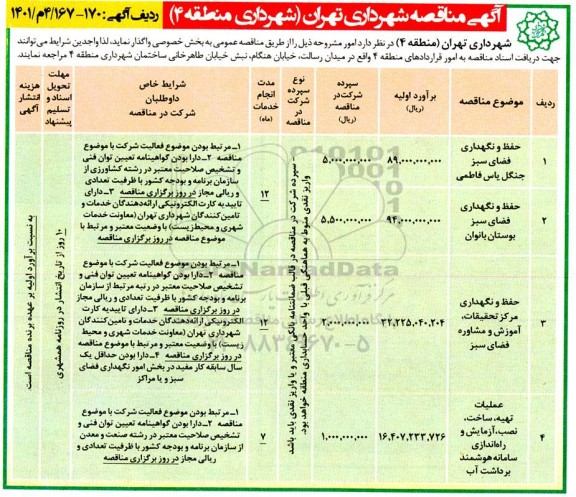 آگهی مناقصه شهرداری تهران (شهرداری منطقه ۴)
ردیف آگهی: ۱۷۰-۴/۱۶۷/م/۱۴۰۱
شهرداری تهران (منطقه ۴) در نظر دارد امور مشروحه ذیل را از طریق مناقصه عمومی به بخش خصوصی واگذار نماید، لذا واجدین شرایط می‌توانند
جهت دریافت اسناد مناقصه به امور قراردادهای منطقه ۴ واقع در میدان رسالت، خیابان هنگام، نبش خیابان طاهرخانی ساختمان شهرداری منطقه ۴ مراجعه نمایند.
ردیف
موضوع مناقصه
برآورد اولیه
(ریال)
سپرده
شرکت در
مناقصه
(ریال)
نوع
سپرده
شرکت
در
مناقصه
مدت
انجام
خدمات
(ماه)
شرایط خاص
داوطلبان
شرکت در مناقصه
مهلت
دریافت
اسناد و
تسلیم
پیشنهاد
هزینه
انتشار
آگهی
۱
حفظ و نگهداری
فضای سبز
جنگل یاس فاطمی
۸۹,۰۰۰,۰۰۰,۰۰۰
۵,۰۰۰,۰۰۰,۰۰۰
۲
حفظ و نگهداری
فضای سبز
بوستان بانوان
۹۴,۰۰۰,۰۰۰,۰۰۰
۵,۵۰۰,۰۰۰,۰۰۰
۱۲
۱ـ مرتبط بودن موضوع فعالیت شرکت با موضوع
مناقصه ۲ـ دارا بودن گواهینامه تعیین توان فنی و
تشخیص صلاحیت معتبر در رشته کشاورزی از
سازمان برنامه و بودجه کشور با ظرفیت تعدادی
و ریالی مجاز در روز برگزاری مناقصه ۳ـ دارای
تاییدیه کارت الکترونیکی ارائه‌دهندگان خدمات و
تامین کنندگان شهرداری تهران (معاونت خدمات
شهری و محیط زیست) با وضعیت معتبر و مرتبط با
موضوع مناقصه در روز برگزاری مناقصه
۳
حفظ و نگهداری
مرکز تحقیقات،
آموزش و مشاوره
فضای سبز
۳۲,۲۲۵,۰۴۰,۲۰۴
۲,۰۰۰,۰۰۰,۰۰۰
۱۲
۱ـ مرتبط بودن موضوع فعالیت شرکت با موضوع
مناقصه ۲ـ دارا بودن گواهینامه تعیین توان فنی و
تشخیص صلاحیت معتبر در رتبه مرتبط از سازمان
برنامه و بودجه کشور با ظرفیت تعدادی و ریالی مجاز
در روز برگزاری مناقصه ۳ـ دارای تاییدیه کارت
الکترونیکی ارائه‌دهندگان خدمات و تامین کنندگان
شهرداری تهران (معاونت خدمات شهری و محیط
زیست) با وضعیت معتبر و مرتبط با موضوع مناقصه
در روز برگزاری مناقصه ۴ـ دارا بودن حداقل یک
سال سابقه کار مفید در بخش امور نگهداری فضای
سبز و یا مراکز
۴
عملیات
تهیه، ساخت،
نصب، آزمایش و
راه‌اندازی
سامانه هوشمند
برداشت آب
۱۶,۴۰۷,۲۳۳,۷۲۶
۱,۰۰۰,۰۰۰,۰۰۰
۷
۱ـ مرتبط بودن موضوع فعالیت شرکت با موضوع
مناقصه ۲ـ دارا بودن گواهینامه تعیین توان فنی و
تشخیص صلاحیت معتبر در رشته صنعت و معدن
از سازمان برنامه و بودجه کشور با ظرفیت تعدادی و
ریالی مجاز در روز برگزاری مناقصه
سپرده شرکت در مناقصه در قالب ضمانتنامه بانکی معتبر و یا واریز نقدی باید باشد
واریز نقدی منوط به هماهنگی قبلی با واحد حسابداری منطقه خواهد بود.
۱۰ روز از تاریخ انتشار در روزنامه همشهری
به نسبت برآورد اولیه بر عهده برنده مناقصه است